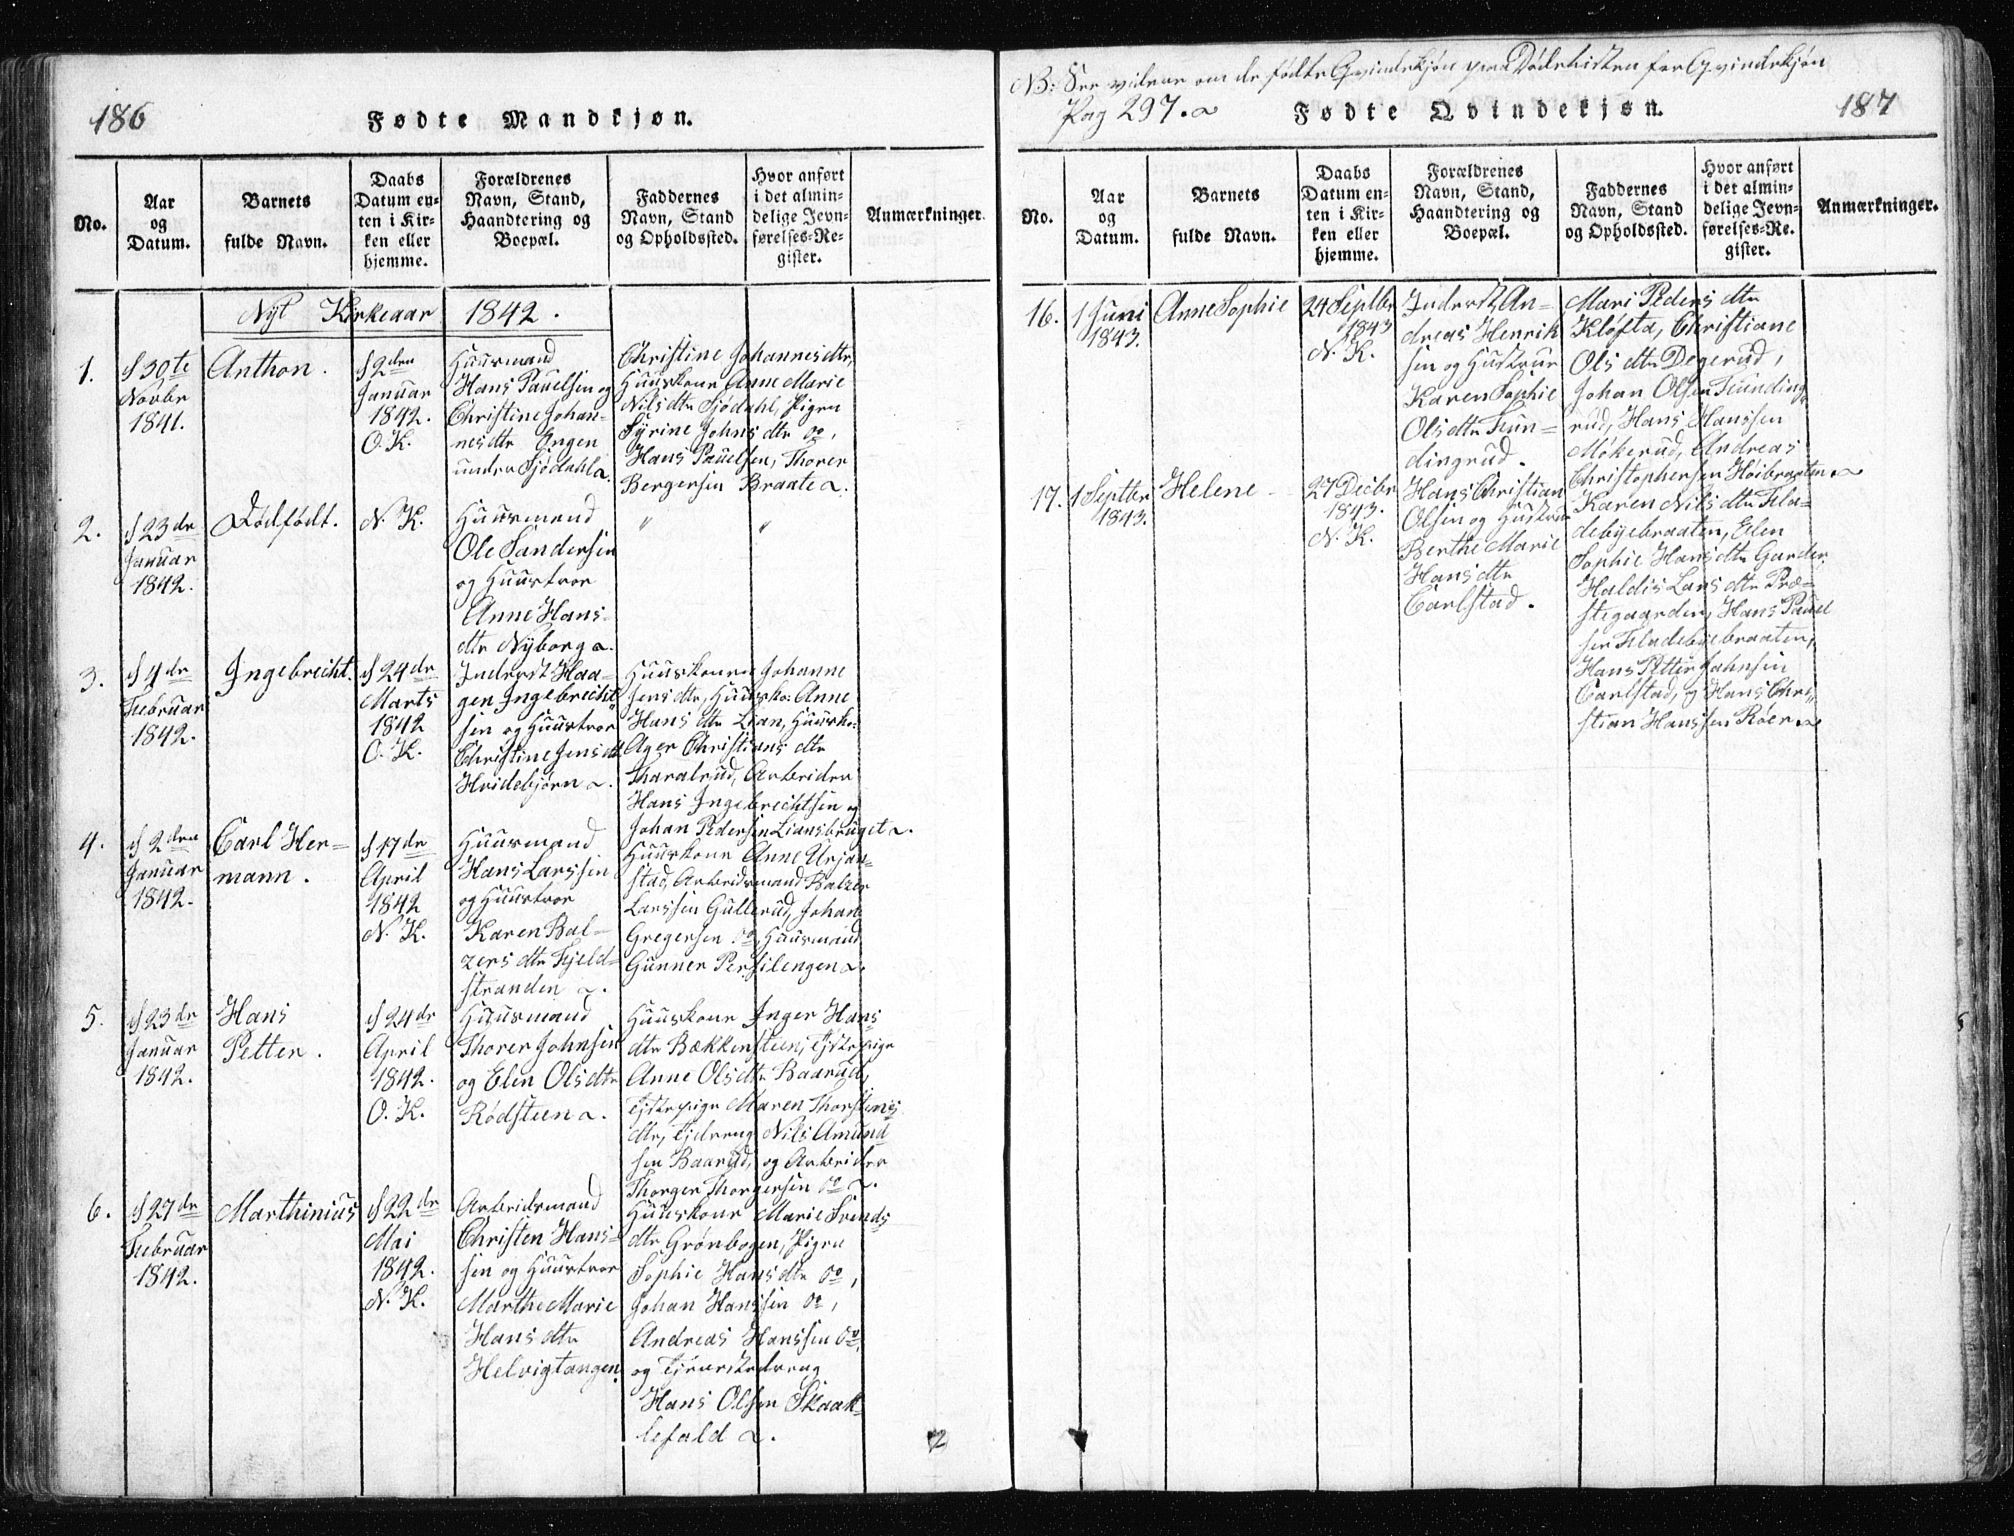 186
Fødte Mandkjøn.
No.
Aar
og
Datum.
Barnets
fulde Navn.
Daabs
Datum en-
ten i Kir-
ken eller
hjemme.
Forældrenes
Navn, Stand,
Haandtering og
Boepæl.
Faddernes
Navn, Stand
og Opholdssted.
Hvor anført
i det almin-
delige Jevn-
førelses-Re-
gister.
Anmærkninger.
Nyt Kirkeaar 1842.
1.
d 30te
Novbr
1841.
Anthon.
d 2den
Januar
1842.
O. K.
Huusmand
Hans Pauelsen og
Christine Johan-
nesdtr Engen
under Sjødahl
Christine Johannesdtr,
Huuskone Anne Marie
Nilsdtr Sjødahl, Pigen
Syrine Johnsdtr do,
Hans Pauelsen, Thorer
Bergersen Braate
2.
d 23de
Januar
1842.
Dødfødt.
N. K.
Huusmand
Ole Sandersen
og Huustroe
Anne Hans-
dtr Nyborg
"
"
3.
d 4de
Februar
1842.
Ingebrecht.
d 24de
Marts
1842
O. K.
Inderst Haa-
gen Ingebrecht-
sen og Huustroe
Christine Jensdtr
Hvidebjørn
Huuskonen Johanne
Jensdtr, Huusko: Anne
Hansdtr Lian, Huusko:
Ager Christiansdtr
Tharalrud, Arbeider
Hans Ingebrechtsen og
Johan Pedersen Liansbruget
4.
d 2den
Januar
1842.
Carl Her-
mann.
d 17de
April
1842
N. K.
Huusmand
Hans Larssen
og Huustroe
Karen Bal-
zersdtr Fjeld-
stranden
Huuskone Anne Urjan-
stad, Arbeidsmand Balzer
Larssen Gullerud, Johan
Gregersen do, Huusmand
Gunner Persilengen
5.
d 23de
Januar
1842.
Hans
Petter.
d 24de
April
1842.
O. K.
Huusmand
Thorer Johnsen
og Elen Olsdtr
Rødsteen
Huuskone Inger Hans
dtr Bækkensteen, Tjstepige
Anne Olsdtr Baarud,
Tjstepige Maren Thorstens
dtr, Tjdreng Nils Amund
sen Baarud, og Arbeider
Thorger Thorgersen do
6.
d 27de
Februar
1842.
Marthinius
d 22de
Mai
1842.
N. K.
Arbeidsmand
Christen Hans-
sen og Huustroe
Marthe Marie
Hansdtr
Helvigtangen.
Huuskone Marie Svends
dtr Grønbogen, Pigen
Sophie Hansdtr do,
Johan Hanssen do,
Andreas Hanssen do,
og Tjenestedreng
Hans Olsen Skaak-
lefald
NB: See videre om de fødte Qvindekjøn paa Dødelisten for Qvindekjøn
Pag 297.
Fødte Qvindekjøn.
187
No.
Aar
og
Datum.
Barnets
fulde Navn.
Daabs
Datum en-
ten i Kir-
ken eller
hjemme.
Forældrenes
Navn, Stand,
Haandtering og
Boepæl.
Faddernes
Navn, Stand
og Opholdssted.
Hvor anført
i det almin-
delige Jevn-
førelses-Re-
gister.
Anmærkninger.
16.
1 Juni
1843.
Anne Sophie
24 Septbr
1843
N. K.
Inderst An-
dreas Henrik
sen og Hustrue
Karen Sophie
Olsdtr Fun-
dingrud.
Mari Pedersdtr
Kløfta, Christiane
Olsdtr Degerud,
Johan Olsen Funding-
rud, Hans Hanssen
Møkerud, Andreas
Christophersen Høibraaten
17.
1 Septbr
1843.
Helene
27 Decbr
1843.
N. K.
Hans Christian
Olsen og Hustrue
Berthe Marie
Hansdtr
Carlstad.
Karen Nilsdtr Fla-
debyebraaten, Elen
Sophie Hansdtr Garder,
Haldis Larsdtr Præ-
stegaarden, Hans Pauel
sen Fladebyebraaten,
Hans Petter Johnsen
Carlstad, og Hans Chri-
stian Hanssen Røer